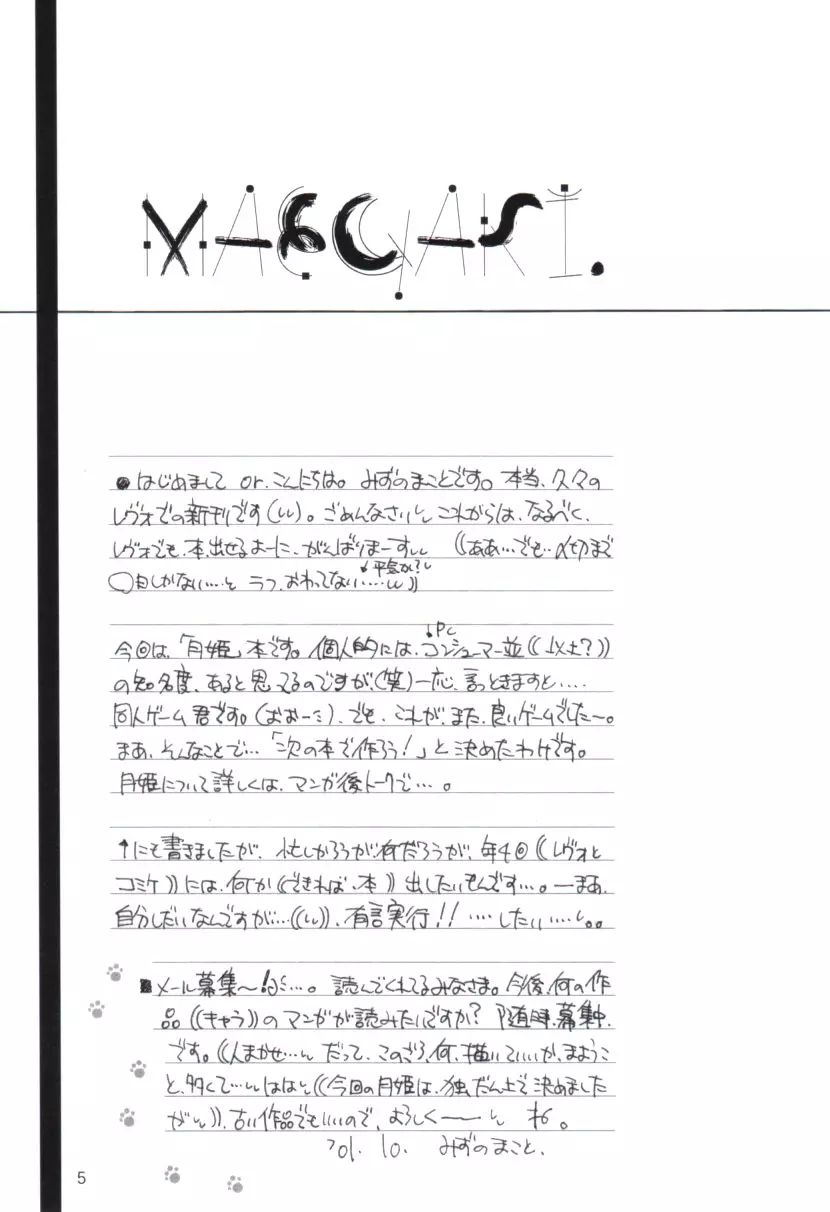 MAEGAKI.
●はじめまして or. こんにちは。みずのまことです。本当、久々の
レヴォでの新刊です(しし)。ごめんなさいし これからは、なるべく、
レヴォでも、本、出せるよーに、がんばりまーすしし ((ああ…でも…〆切まで
↓平気か?し
○日しかない……と ラフ、おわってない……しし))
↓PC
今回は、「月姫」本です。個人的には、コンシューマー並((以上?))
の知名度、あると思ってるのですが、(笑)一応、言っときますと、…
同人ゲーム君です。(おおーミ)、でも、これが、また、良いゲームでした〜。
まあ、そんなことで…「次の本で作ろう!」と決めたわけです。
月姫について詳しくは、マンガ後トークで…。
↑にも書きましたが、忙しかろうが何だろうが、年4回((レヴォと
コミケ))には、何か((できれば、本))出したいもんです…。ーまあ、
自分しだいなんですが…((しし))、有言実行!!……したい……し。。
■メール募集〜!……。読んでくれてるみなさま。今後、何の作
品((キャラ))のマンガが読みたいですか?随時、募集中、
です。((人まかせ…し だって、このごろ、何、描いていいか、まよう
と、多くて…しし ははし((今回の月姫は、独だん上で決めました
がし))、古い作品でもいいので、よろしくーーし ね。
'01. 10. みずのまこと、
5